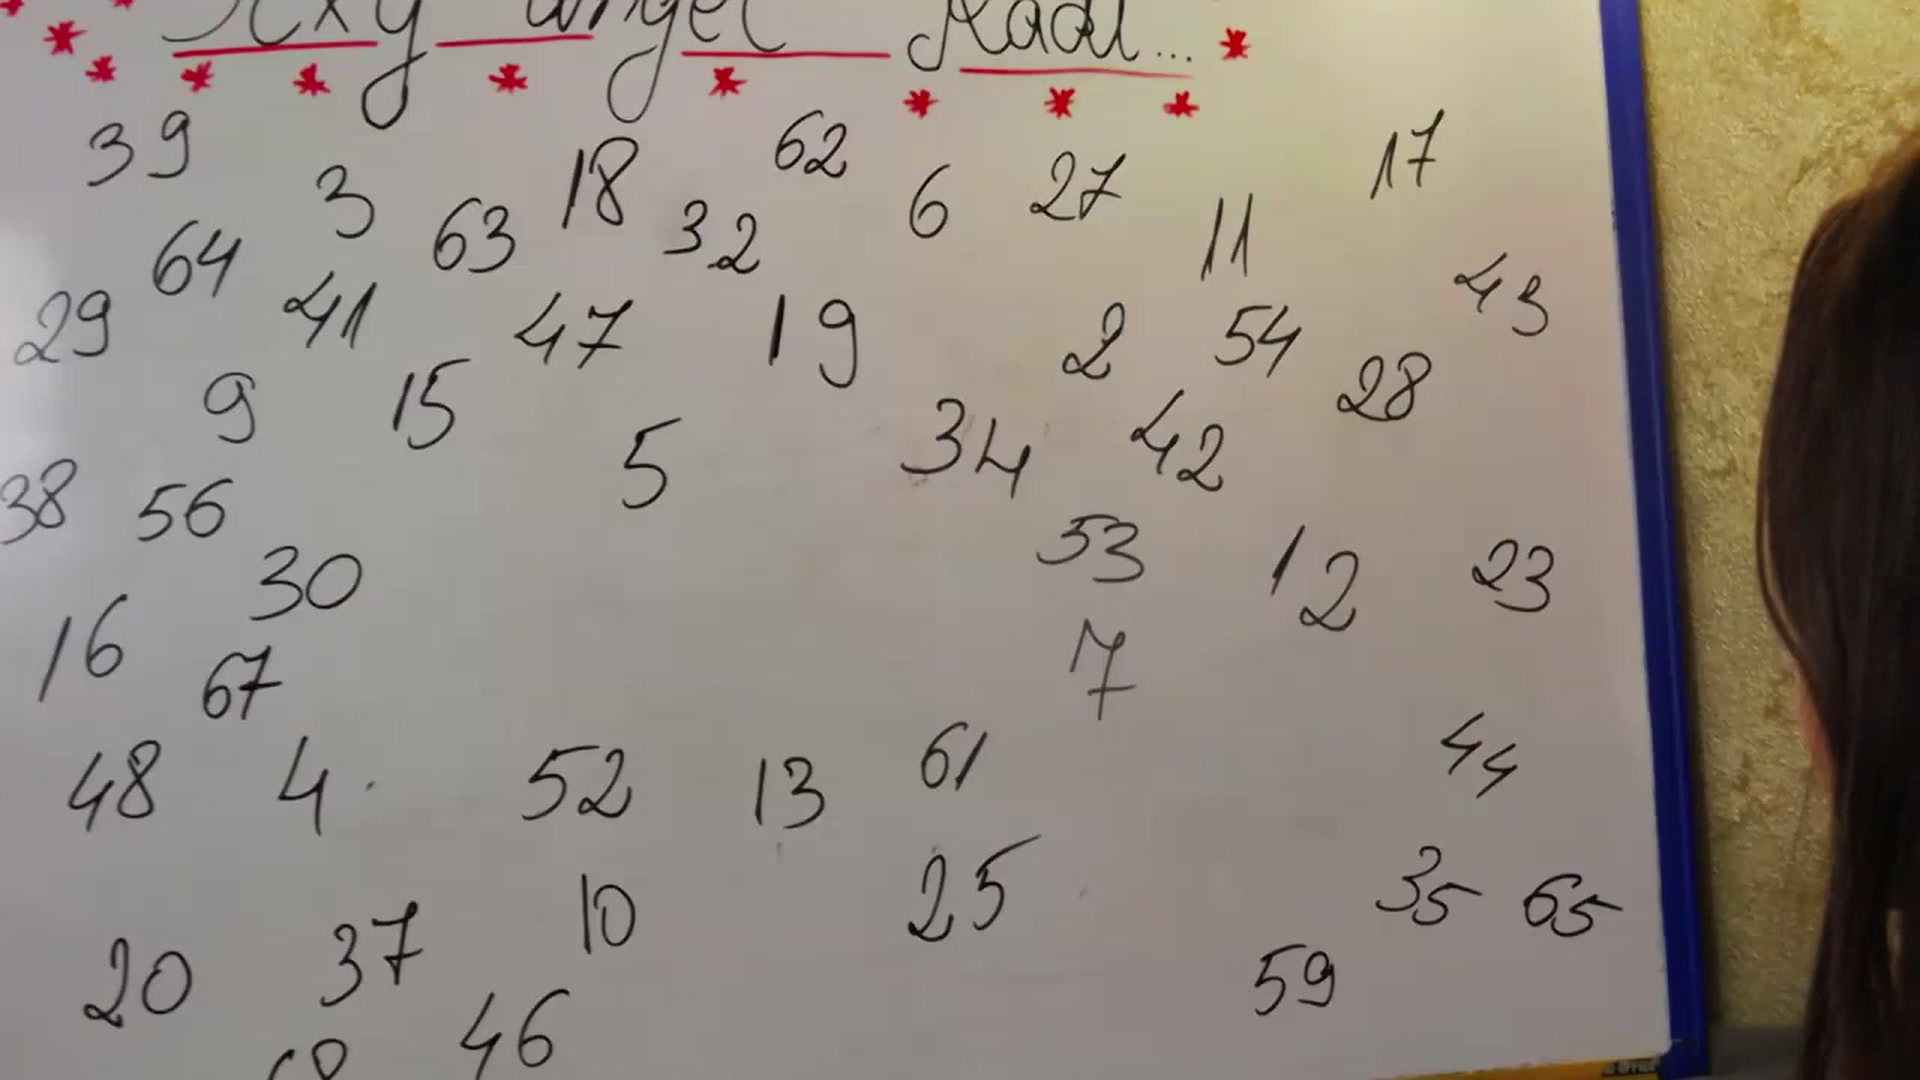 angel
39 3 18 62 6 27 17
64 63 32 11 43
29 41 47 19 2 54
9 15 5 34 42 28
38 56 53 12 23
16 30 7
67
48 4 52 13 61 44
25 35 65
20 37 10 59
46